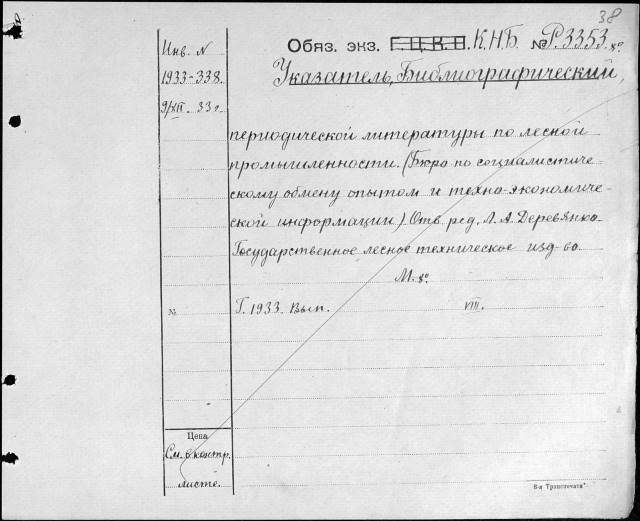 38
Инв. N
1933-338.
9/XII. 33 г.
Обяз. экз. Г.Ц.К.П. К.Н.Б. № Р.3353. 8°.
Указатель, Библиографический,
периодической литературы по лесной
промышленности. (Бюро по социалистиче-
скому обмену опытом и техно-экономиче-
ской информации) Отв. ред. Л. А. Деревянко.
Государственное лесное техническое изд-во
М. 8°
№ Г. 1933. Вып. VIII.
Цена
См. в контр.
листе.
8-я Транспечать"